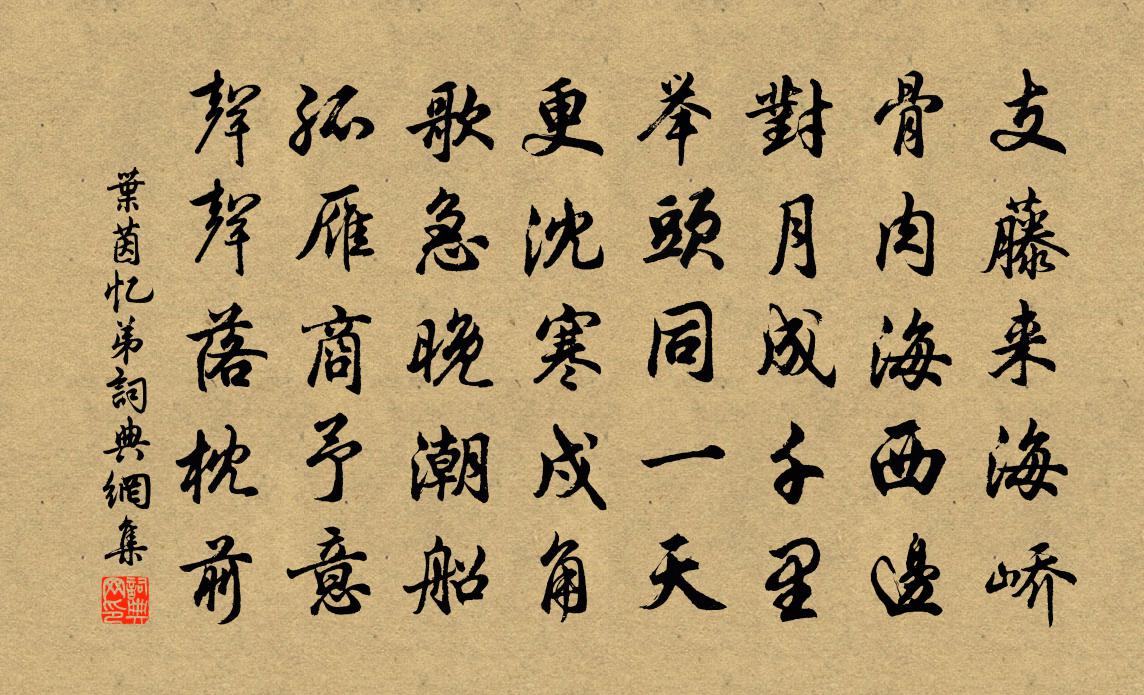 支藤来海峤
骨肉海西邊
對月成千里
举頭同一天
更沈寒戍角
歌急晚潮船
孤雁商予意
聲聲落枕前
葉茵忆弟詞典網集
詞典网印